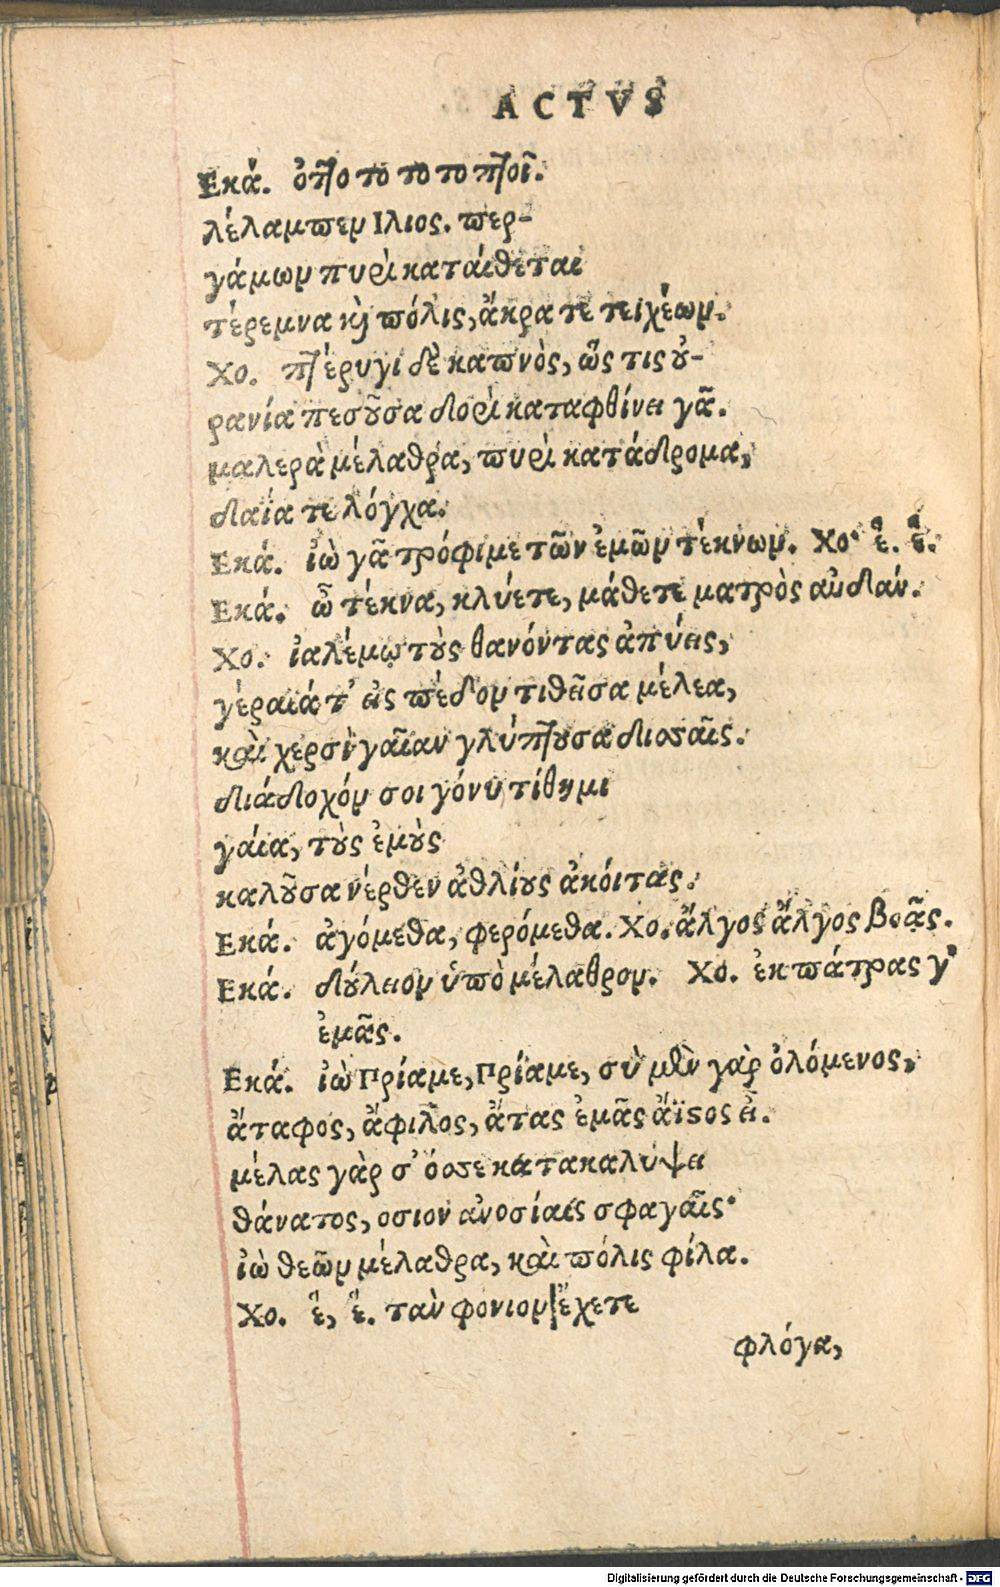 ACTVS
Εκά. ὀπτο το το το πτοῖ.
λέλαμπεν Ιλιος. περ-
γάμων πυρὶ καταίθεται
τέρεμνα καὶ πόλις, ἄκρα τε τειχέων.
Χο. πτέρυγι δὲ καπνὸς, ὥς τις οὐ-
ρανία πεσοῦσα δορὶ καταφθίνει γᾶ.
μαλερὰ μέλαθρα, πυρὶ κατάδρομα,
δαΐα τε λόγχα.
Εκά. ἰὼ γᾶ τρόφιμε τῶν ἐμῶν τέκνων. Χο. ἒ. ἒ.
Εκά. ὦ τέκνα, κλύετε, μάθετε ματρὸς αὐδάν.
Χο. ἰαλέμῳ τοὺς θανόντας ἀπύεις,
γέραιά τ' εἰς πέδον τιθεῖσα μέλεα,
καὶ χερσὶ γαῖαν γλύπτουσα δισσαῖς.
διάδοχόν σοι γόνυ τίθημι
γαία, τοὺς ἐμοὺς
καλοῦσα νέρθεν ἀθλίους ἀκοίτας.
Εκά. ἀγόμεθα, φερόμεθα. Χο. ἄλγος ἄλγος βοᾷς.
Εκά. δούλειον ὑπὸ μέλαθρον. Χο. ἐκ πάτρας γ'
ἐμᾶς.
Εκά. ἰὼ Πρίαμε, Πρίαμε, σὺ μὲν γὰρ ὀλόμενος,
ἄταφος, ἄφιλος, ἄτας ἐμᾶς ἄϊστος εἶ.
μέλας γὰρ σ' όσσε κατακαλύψει
θάνατος, οσιον ἀνοσίαις σφαγαῖς.
ἰὼ θεῶν μέλαθρα, καὶ πόλις φίλα.
Χο. ἒ, ἒ. τὰν φονιον ἔχετε
φλόγα,
Digitalisierung gefördert durch die Deutsche Forschungsgemeinschaft - DFG